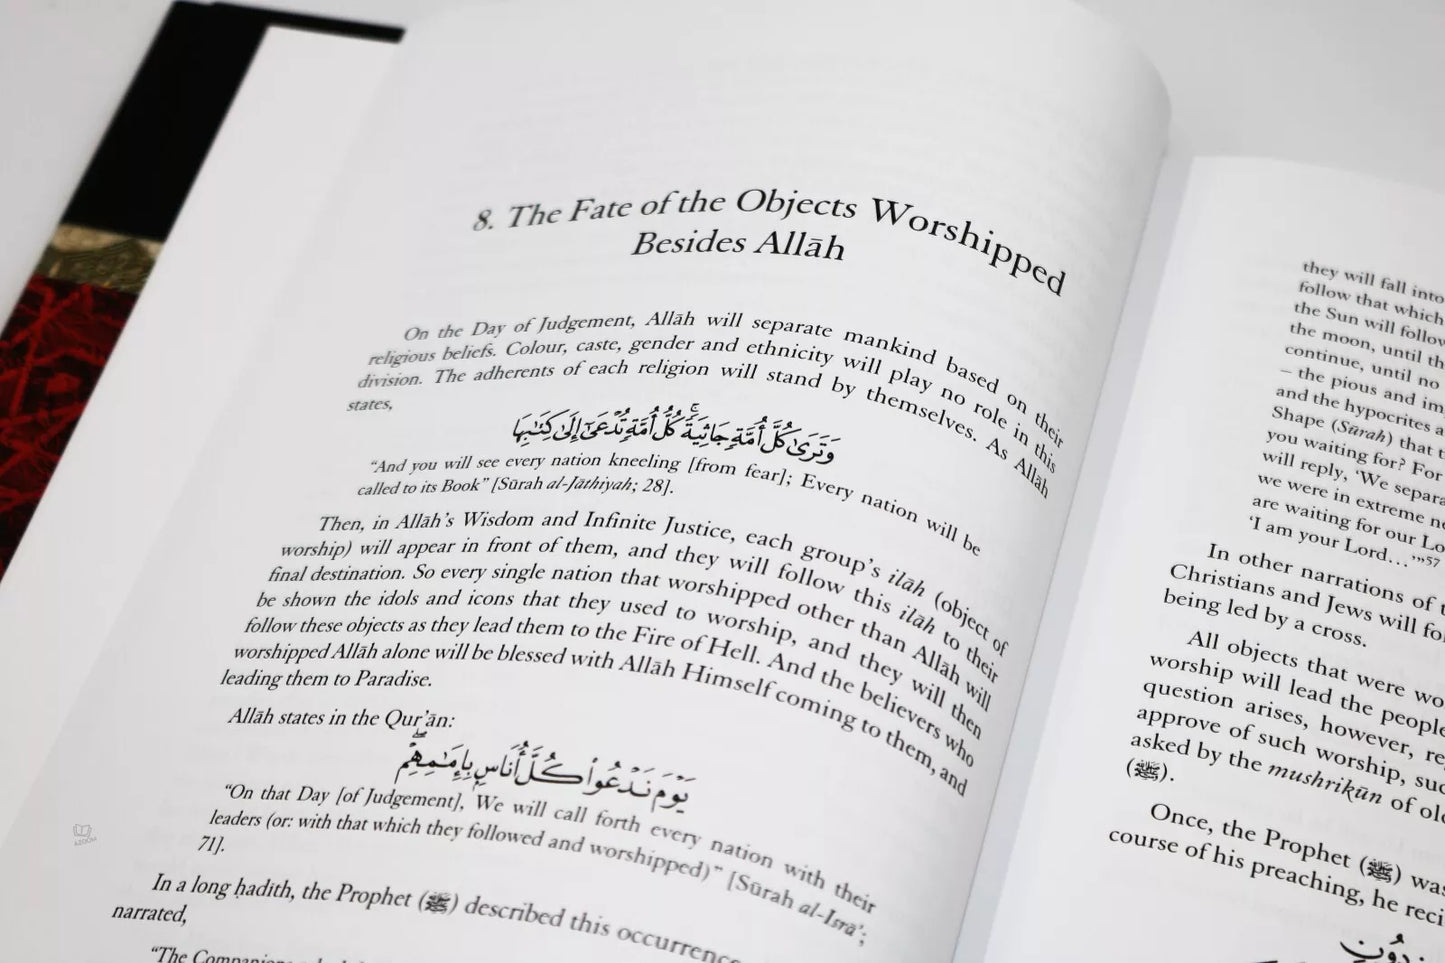 8. The Fate of the Objects Worshipped
Besides Allāh
On the Day of Judgement, Allāh will separate mankind based on their
religious beliefs. Colour, caste, gender and ethnicity will play no role in this
division. The adherents of each religion will stand by themselves. As Allāh
states,
وَتَرَىٰ كُلَّ أُمَّةٍ جَاثِيَةً ۚ كُلُّ أُمَّةٍ تُدْعَىٰٓ إِلَىٰ كِتَٰبِهَا
“And you will see every nation kneeling [from fear]; Every nation will be
called to its Book” [Sūrah al-Jāthiyah; 28].
Then, in Allāh’s Wisdom and Infinite Justice, each group’s ilāh (object of
worship) will appear in front of them, and they will follow this ilāh to their
final destination. So every single nation that worshipped other than Allāh will
be shown the idols and icons that they used to worship, and they will then
follow these objects as they lead them to the Fire of Hell. And the believers who
worshipped Allāh alone will be blessed with Allāh Himself coming to them, and
leading them to Paradise.
Allāh states in the Qur’ān:
يَوْمَ نَدْعُوا۟ كُلَّ أُنَاسٍۭ بِإِمَٰمِهِمْ ۖ
“On that Day [of Judgement], We will call forth every nation with their
leaders (or: with that which they followed and worshipped)” [Sūrah al-Isrā’;
71].
In a long ḥadīth, the Prophet (ﷺ) described this occurrence
narrated,
“The Companions
AZOOM
they will fall into
follow that which
the Sun will follow
the moon, until th
continue, until no
– the pious and im
and the hypocrites a
Shape (Sūrah) that t
you waiting for? For
will reply, ‘We separa
we were in extreme ne
are waiting for our Lo
‘I am your Lord…’”57
In other narrations of t
Christians and Jews will fol
being led by a cross.
All objects that were wo
worship will lead the people
question arises, however, re
approve of such worship, suc
asked by the mushrikūn of old
(ﷺ).
Once, the Prophet (ﷺ) was
course of his preaching, he reci